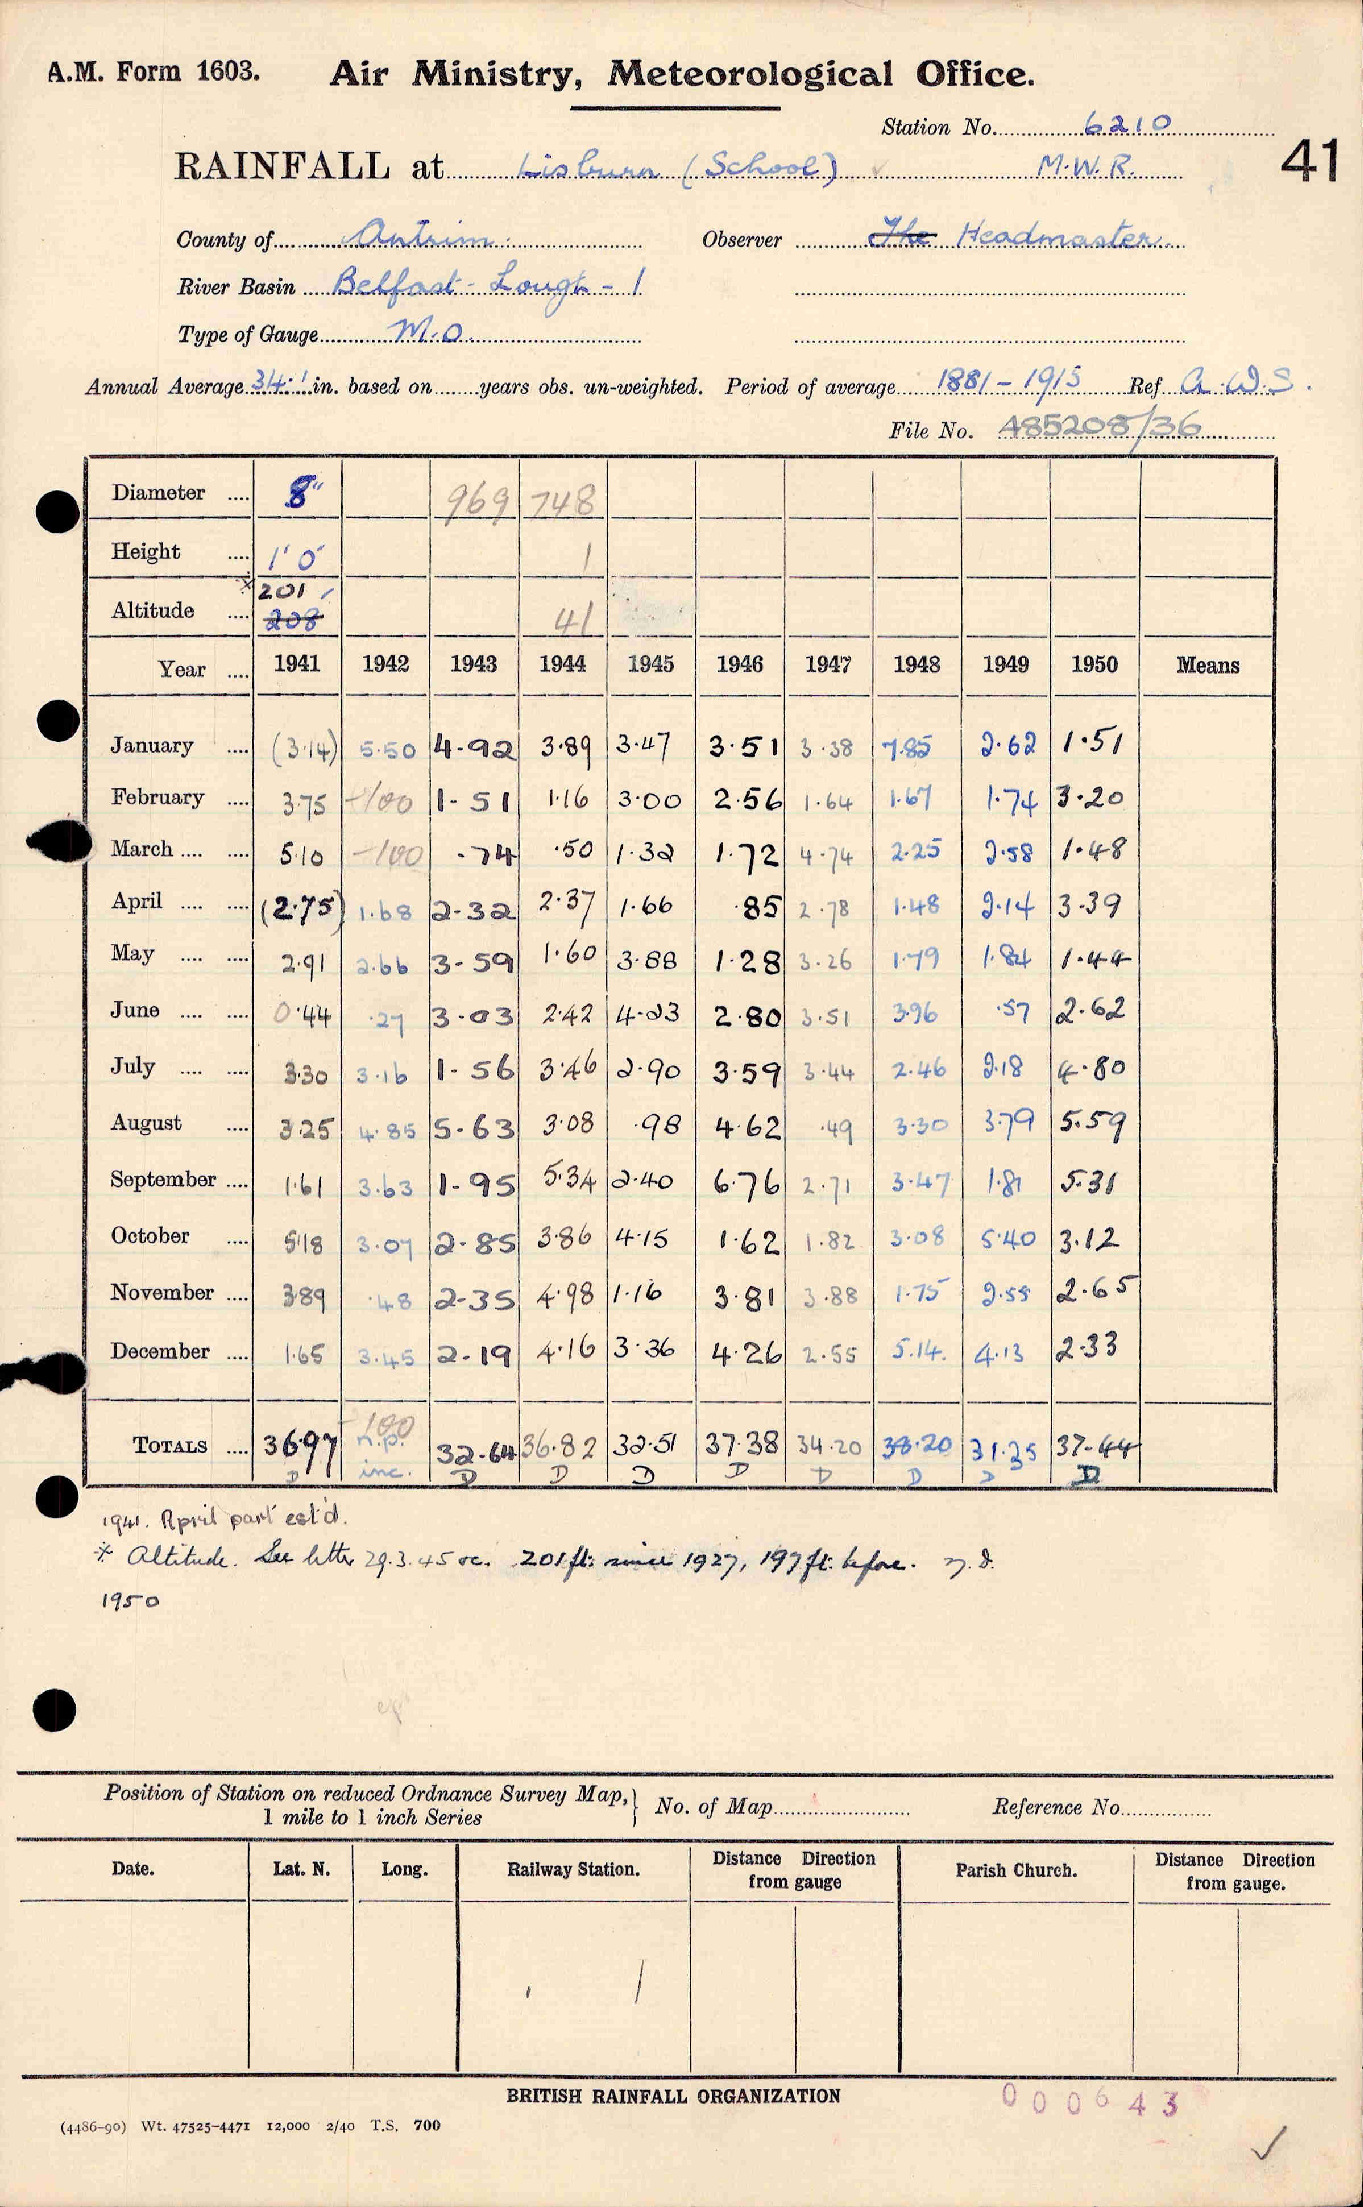 A.M. Form 1603. Air Ministry, Meteorological Office.
Station No. 6210
RAINFALL at Lisburn (School) M.W.R. 41
County of Antrim. Observer The Headmaster.
River Basin Belfast Lough - 1
Type of Gauge M.O.
Annual Average 34.1 in. based on years obs. un-weighted. Period of average 1881-1915 Ref A.W.S.
File No. A85208/36
Diameter .... 8" 969 748
Height .... 1' 0" 1
* 201
Altitude .... 208 41
Year .... 1941 1942 1943 1944 1945 1946 1947 1948 1949 1950 Means
January .... (3.14) 5.50 4.92 3.89 3.47 3.51 3.38 7.85 2.62 1.51
February .... 3.75 -100 1.51 1.16 3.00 2.56 1.64 1.67 1.74 3.20
March .... .... 5.10 -100 .74 .50 1.32 1.72 4.74 2.25 2.58 1.48
April .... .... (2.75) 1.68 2.32 2.37 1.66 .85 2.78 1.48 2.14 3.39
May .... .... 2.91 2.66 3.59 1.60 3.88 1.28 3.26 1.79 1.84 1.44
June .... .... 0.44 .27 3.03 2.42 4.23 2.80 3.51 3.96 .57 2.62
July .... .... 3.30 3.16 1.56 3.46 2.90 3.59 3.44 2.46 2.18 4.80
August .... 3.25 4.85 5.63 3.08 .98 4.62 .49 3.30 3.79 5.59
September .... 1.61 3.63 1.95 5.34 2.40 6.76 2.71 3.47 1.81 5.31
October .... 5.18 3.07 2.85 3.86 4.15 1.62 1.82 3.08 5.40 3.12
November .... 3.89 .48 2.35 4.98 1.16 3.81 3.88 1.75 2.55 2.65
December .... 1.65 3.45 2.19 4.16 3.36 4.26 2.55 5.14 4.13 2.33
-100
TOTALS .... 36.97 n.p. 32.64 36.82 32.51 37.38 34.20 38.20 31.35 37.44
D inc. D D D D D D D D
1941. April part est'd.
* Altitude. See letter 29.3.45 rc. 201 ft. since 1927, 197 ft. before.
1950
Position of Station on reduced Ordnance Survey Map, } No. of Map Reference No.
1 mile to 1 inch Series
Date. Lat. N. Long. Railway Station. Distance Direction from gauge Parish Church. Distance Direction from gauge.
BRITISH RAINFALL ORGANIZATION
000643
(4486-90) Wt. 47525-4471 12,000 2/40 T.S. 700